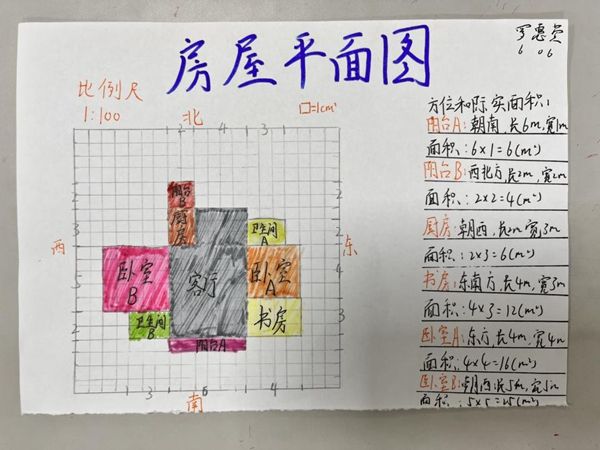 房屋平面图
罗惠
6 06
比例尺
1:100
北
□=1cm²
2 4 3
阳台
B
厨房
卫生间
A
西
东
卧室
B
客厅
卧室
A
卫生间
B
书房
阳台A
3 6 4
南
2
3
5
2
2
4
3
方位和际实面积:
阳台A:朝南,长6m,宽1m
面积:6×1=6(m²)
阳台B:西北方,长2m,宽2m
面积:2×2=4(m²)
厨房:朝西,长2m 宽3m
面积:2×3=6(m²)
书房:东南方,长4m,宽3m
面积:4×3=12(m²)
卧室A:东方,长4m,宽4m
面积:4×4=16(m²)
卧室B:朝西,长5m,宽5m
面积:5×5=25(m²)